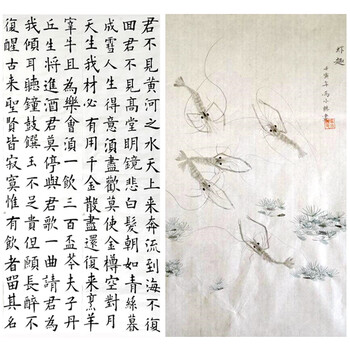 君不見黄河之水天上来奔流到海不復
回君不見高堂明鏡悲白髮朝如青絲暮
成雪人生得意須盡歡莫使金樽空對月
天生我材必有用千金散盡還復来烹羊
宰牛且為樂會須一飲三百盃岑夫子丹
丘生將進酒君莫停與君歌一曲請君為
我傾耳聽鐘鼓饌玉不足貴但願長醉不
復醒古来聖賢皆寂寞惟有飲者留其名
虾趣